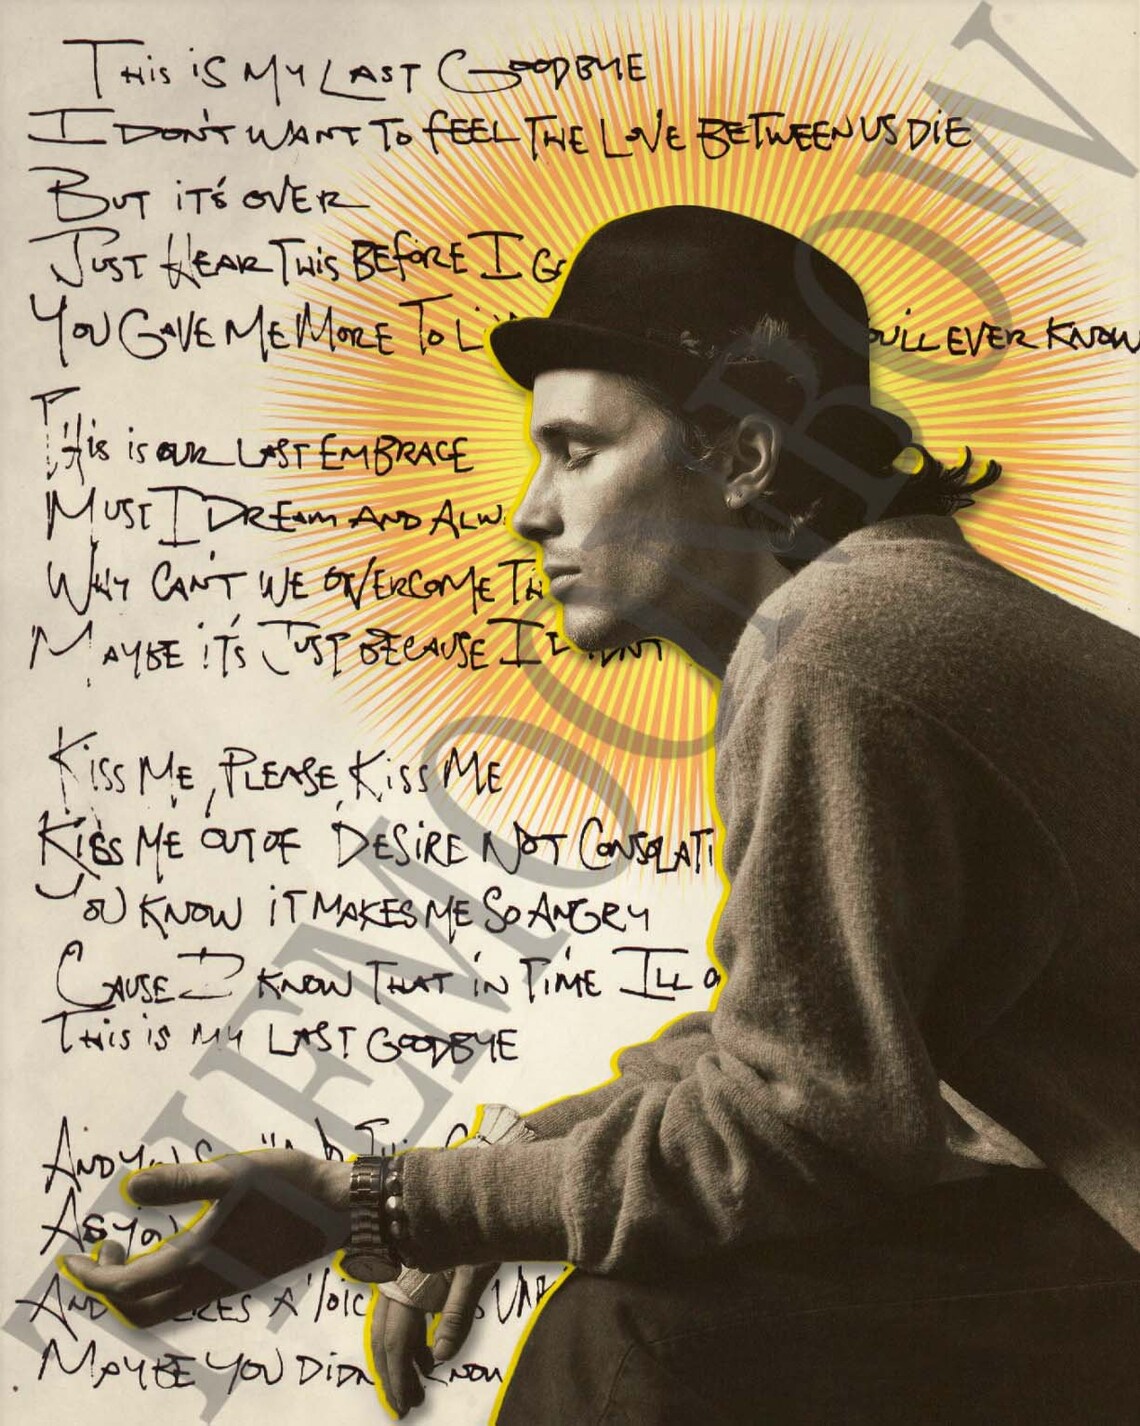 This is My Last Goodbye
I Don't Want To feel The Love Between us Die
But it's over
Just Hear This Before I Go
You Gave Me More To oull ever know
This is our Last Embrace
Must I Dream and
Why Can't we overcome
Maybe it's Just because I
Kiss Me, Please Kiss Me
Kiss Me out of Desire Not
You know it makes me So Angry
Cause I know that in Time Ill
This is my last goodbye
And
As
And A
Maybe you know
THEMOONBOV